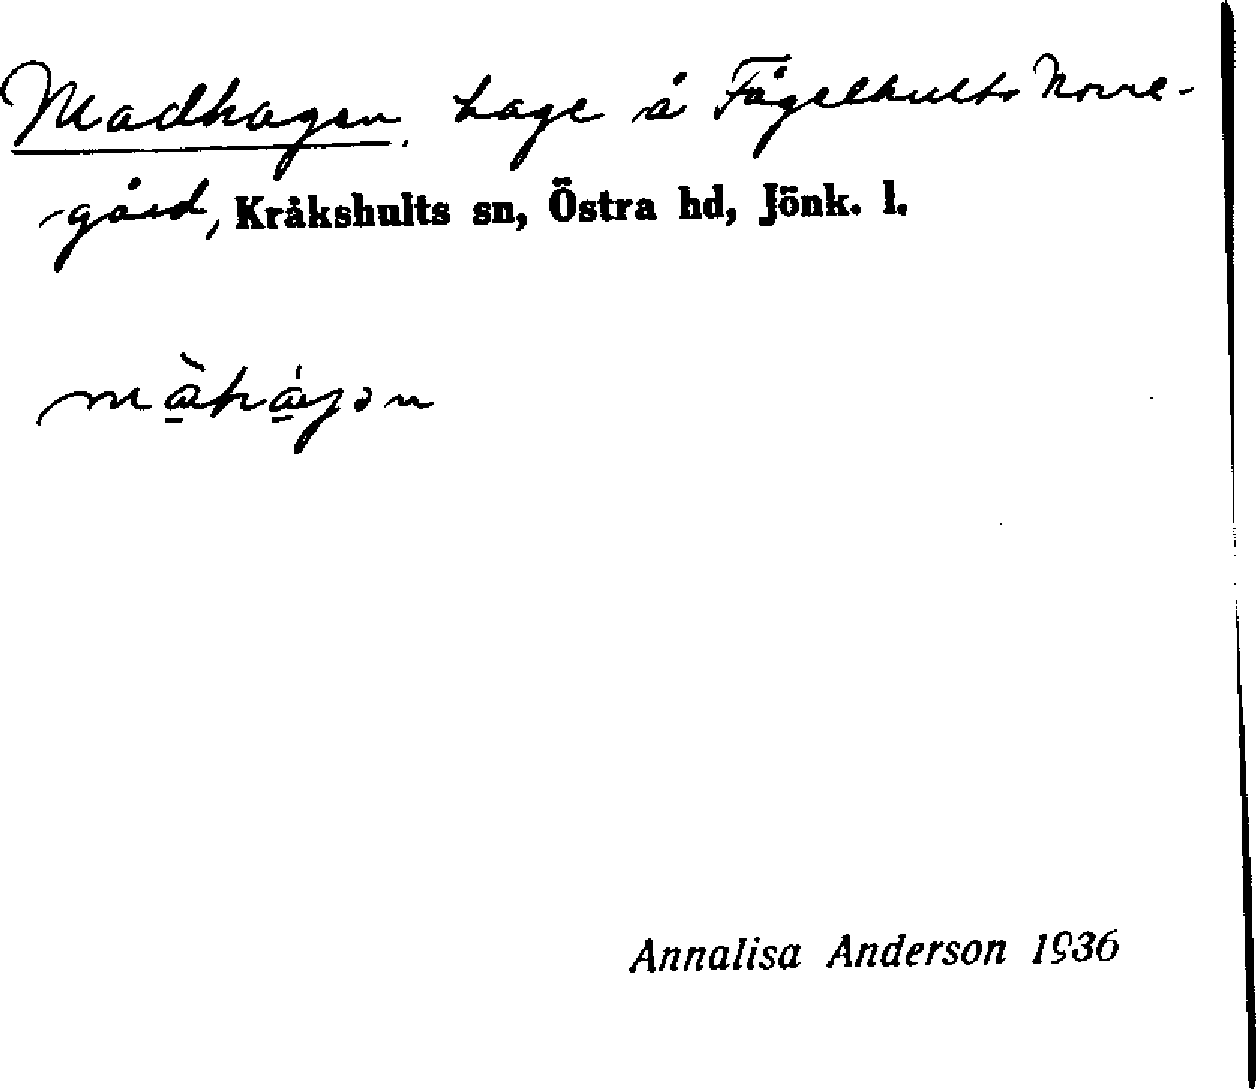 Madhagen. hage å Fågelhults Norre-
gård, Kråkshults sn, Östra hd, Jönk. l.
màhágən
Annalisa Anderson 1936